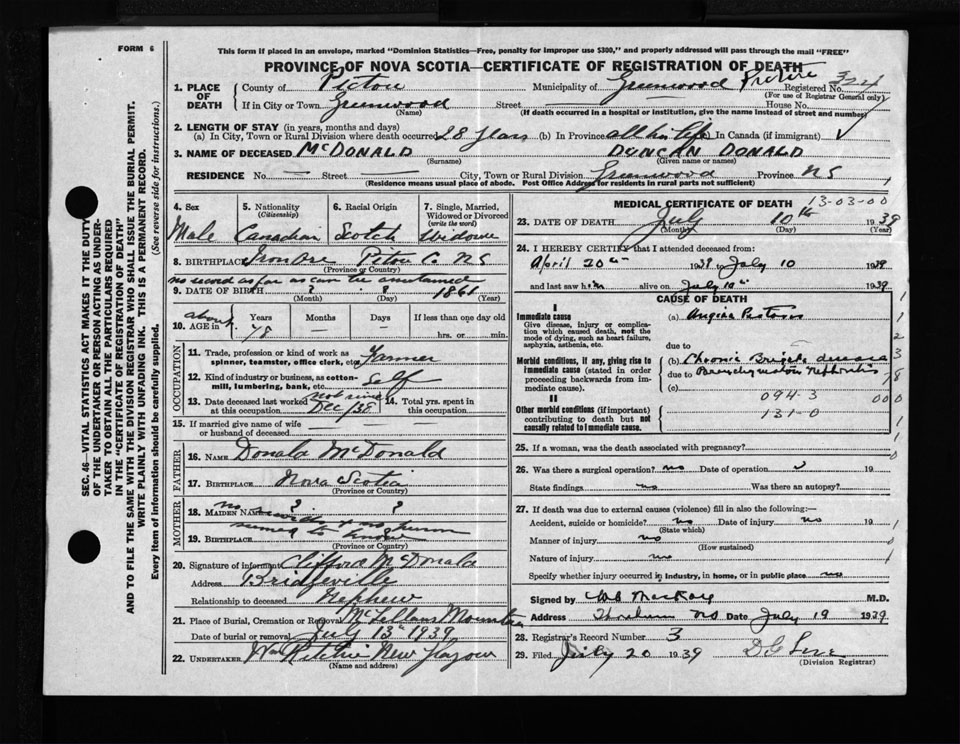 FORM 6
This form if placed in an envelope, marked "Dominion Statistics—Free, penalty for improper use $300," and properly addressed will pass through the mail "FREE"
PROVINCE OF NOVA SCOTIA—CERTIFICATE OF REGISTRATION OF DEATH
SEC. 46—VITAL STATISTICS ACT MAKES IT THE DUTY
OF THE UNDERTAKER OR PERSON ACTING AS UNDER-
TAKER TO OBTAIN ALL THE PARTICULARS REQUIRED
IN THE "CERTIFICATE OF REGISTRATION OF DEATH"
AND TO FILE THE SAME WITH THE DIVISION REGISTRAR WHO SHALL ISSUE THE BURIAL PERMIT.
WRITE PLAINLY WITH UNFADING INK. THIS IS A PERMANENT RECORD.
Every item of information should be carefully supplied. (See reverse side for instructions.)
1. PLACE OF DEATH County of Pictou Municipality of Greenwood Pictou Registered No. 324
(For use of Registrar General only)
If in City or Town Greenwood Street — House No. —
(Name) (If death occurred in a hospital or institution, give the name instead of street and number)
2. LENGTH OF STAY (in years, months and days)
(a) In City, Town or Rural Division where death occurred 28 years (b) In Province all his life (c) In Canada (if immigrant)
3. NAME OF DECEASED McDONALD DUNCAN DONALD
(Surname) (Given name or names)
RESIDENCE No. — Street — City, Town or Rural Division Greenwood Province NS
(Residence means usual place of abode. Post Office Address for residents in rural parts not sufficient)
4. Sex Male
5. Nationality (Citizenship) Canadian
6. Racial Origin Scotch
7. Single, Married, Widowed or Divorced (write the word) Widower
8. BIRTHPLACE Iron Ore Pictou Co. NS
(Province or Country)
no record as far as can be ascertained
9. DATE OF BIRTH ? ? 1861
(Month) (Day) (Year)
10. AGE in about Years 78 Months — Days — If less than one day old hrs. or min.
OCCUPATION
11. Trade, profession or kind of work as spinner, teamster, office clerk, etc. Farmer
12. Kind of industry or business, as cotton-mill, lumbering, bank, etc. self
13. Date deceased last worked at this occupation not since Dec/38
14. Total yrs. spent in this occupation
15. If married give name of wife or husband of deceased — —
FATHER
16. NAME Donald McDonald
17. BIRTHPLACE Nova Scotia
(Province or Country)
MOTHER
18. MAIDEN NAME ? ?
no records & no person
seemed to know
19. BIRTHPLACE
(Province or Country)
20. Signature of informant Clifford McDonald
Address Bridgeville
Relationship to deceased Nephew
21. Place of Burial, Cremation or Removal McLellans Mountain
Date of burial or removal July 13th 1939
22. UNDERTAKER Wm Ritchie New Glasgow
(Name and address)
MEDICAL CERTIFICATE OF DEATH 13-03-00
23. DATE OF DEATH July 10th 1939
(Month) (Day) (Year)
24. I HEREBY CERTIFY that I attended deceased from:
April 20th 1939 July 10 1939
and last saw him alive on July 10th 1939
CAUSE OF DEATH
I
Immediate cause
Give disease, injury or complication which caused death, not the mode of dying, such as heart failure, asphyxia, asthenia, etc.
(a) Angina Pectoris
due to
Morbid conditions, if any, giving rise to immediate cause (stated in order proceeding backwards from immediate cause).
(b) Chronic Brights disease
due to Parenchymatous Nephritis
(c)
094-3
II
Other morbid conditions (if important) contributing to death but not causally related to immediate cause.
131-0
25. If a woman, was the death associated with pregnancy?
26. Was there a surgical operation? no Date of operation 19
State findings no Was there an autopsy?
27. If death was due to external causes (violence) fill in also the following:—
Accident, suicide or homicide? no Date of injury no 19
(State which)
Manner of injury no
(How sustained)
Nature of injury no
Specify whether injury occurred in industry, in home, or in public place no
Signed by WB MacKay M.D.
Address Thorburn NS Date July 19 1939
28. Registrar's Record Number 3
29. Filed July 20 1939
(Division Registrar)